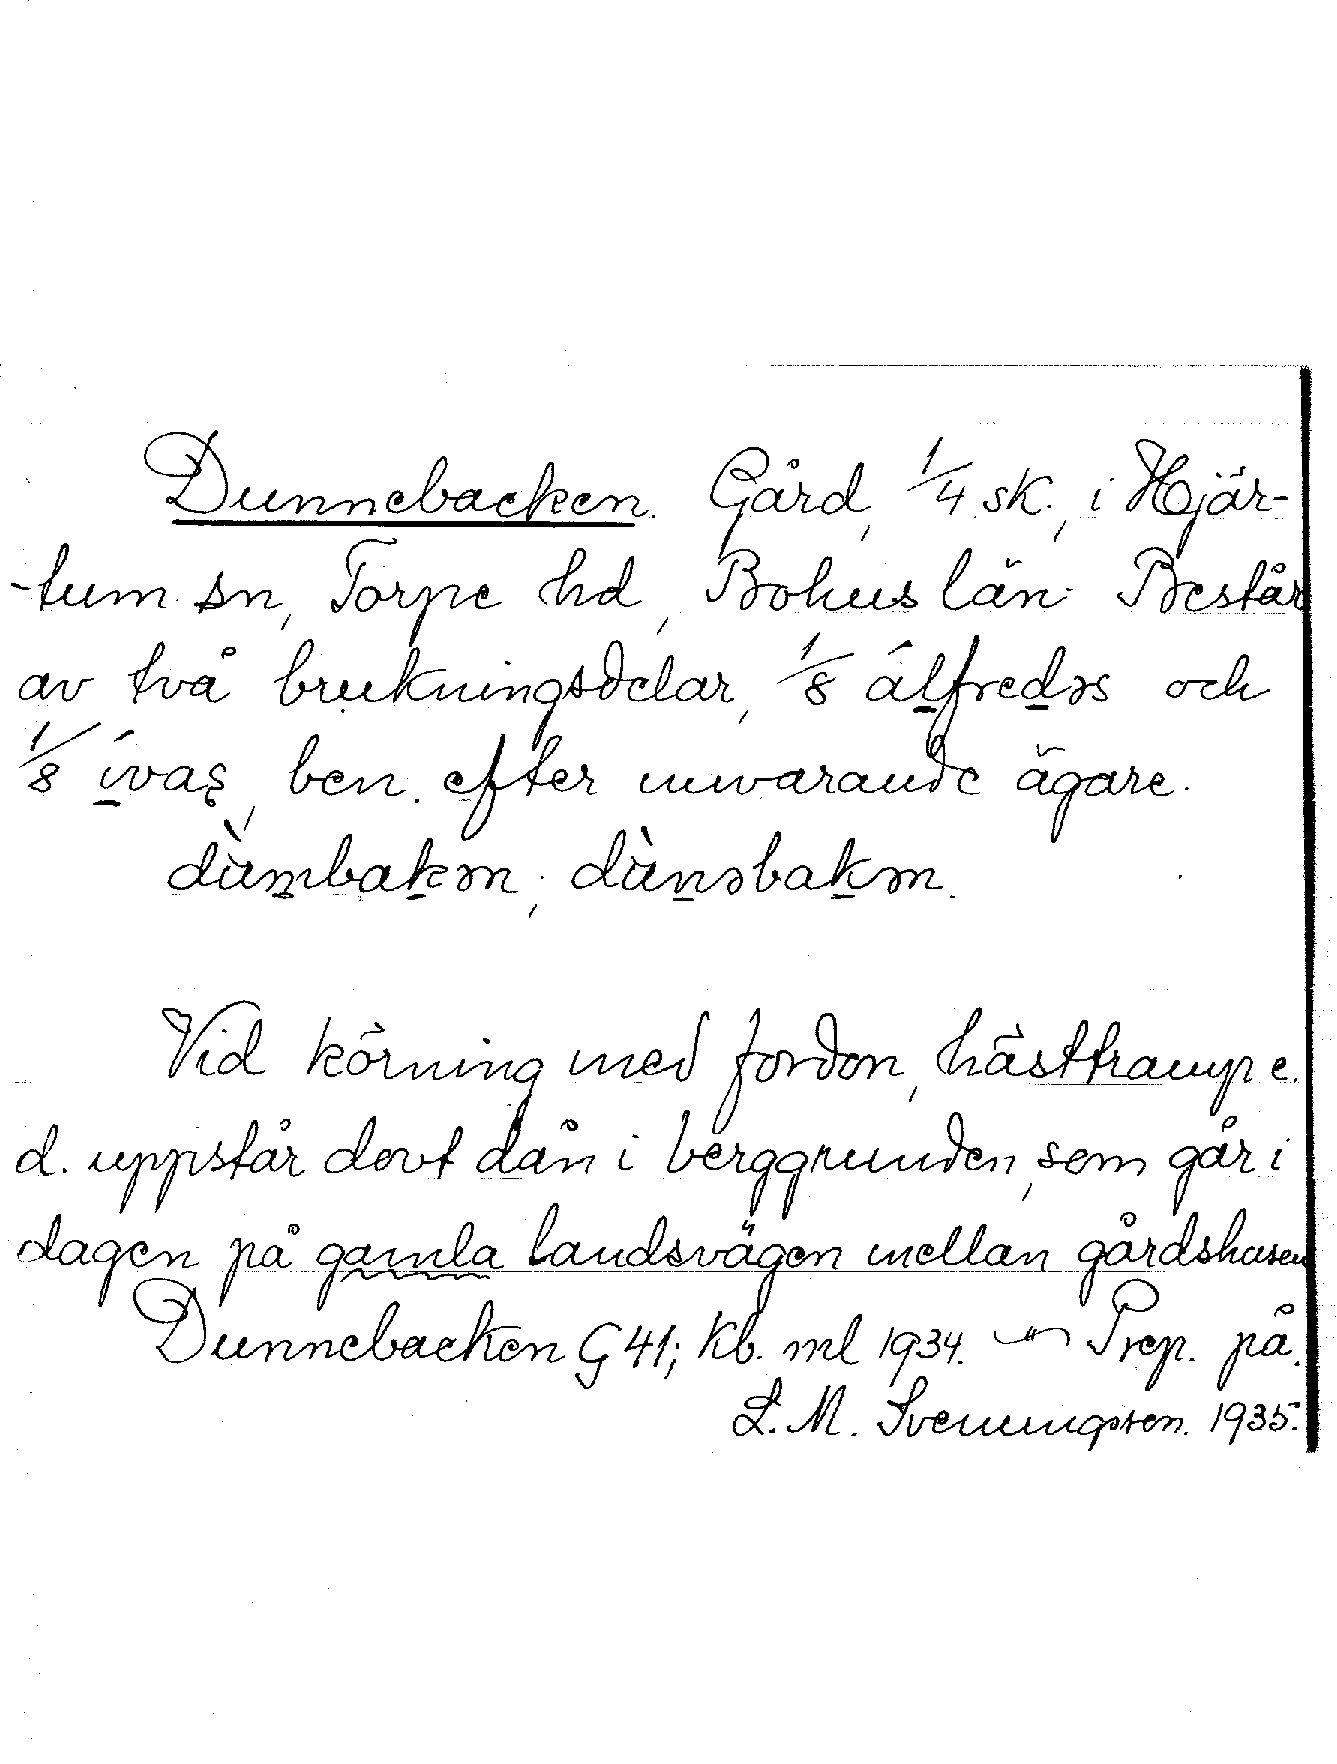 Dunnebacken. Gård, 1/4 sk., i Hjär-
-tum sn, Torpe hd, Bohus län. Består
av två brukningsdelar, 1/8 álfredəs och
1/8 ívaş, ben. efter nuvarande ägare.
dùmbakən; dùnəbakən.
Vid körning med fordon, hästtramp e.
d. uppstår dovt dån i berggrunden, som går i
dagen på gamla landsvägen mellan gårdshusen
Dunnebacken G 41; Kb. ml 1934. — " — Prep. på.
L. M. Svenungsson. 1935.